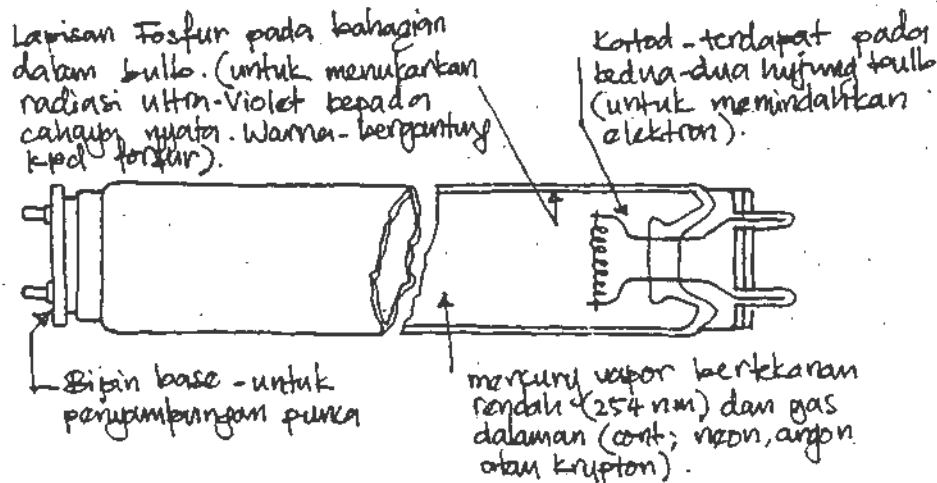 Lapisan Fosfur pada bahagian
dalam bulb. (untuk menukarkan
radiasi ultra-Violet kepada
cahaya nyata. Warna-bergantung
kpd fosfur).
Katod - terdapat pada
kedua-dua hujung bulb
(untuk memindahkan
elektron).
Bipin base - untuk
penyambungan punca
mercury vapor bertekanan
rendah (254 nm) dan gas
dalaman (cont; neon, argon
atau krypton).